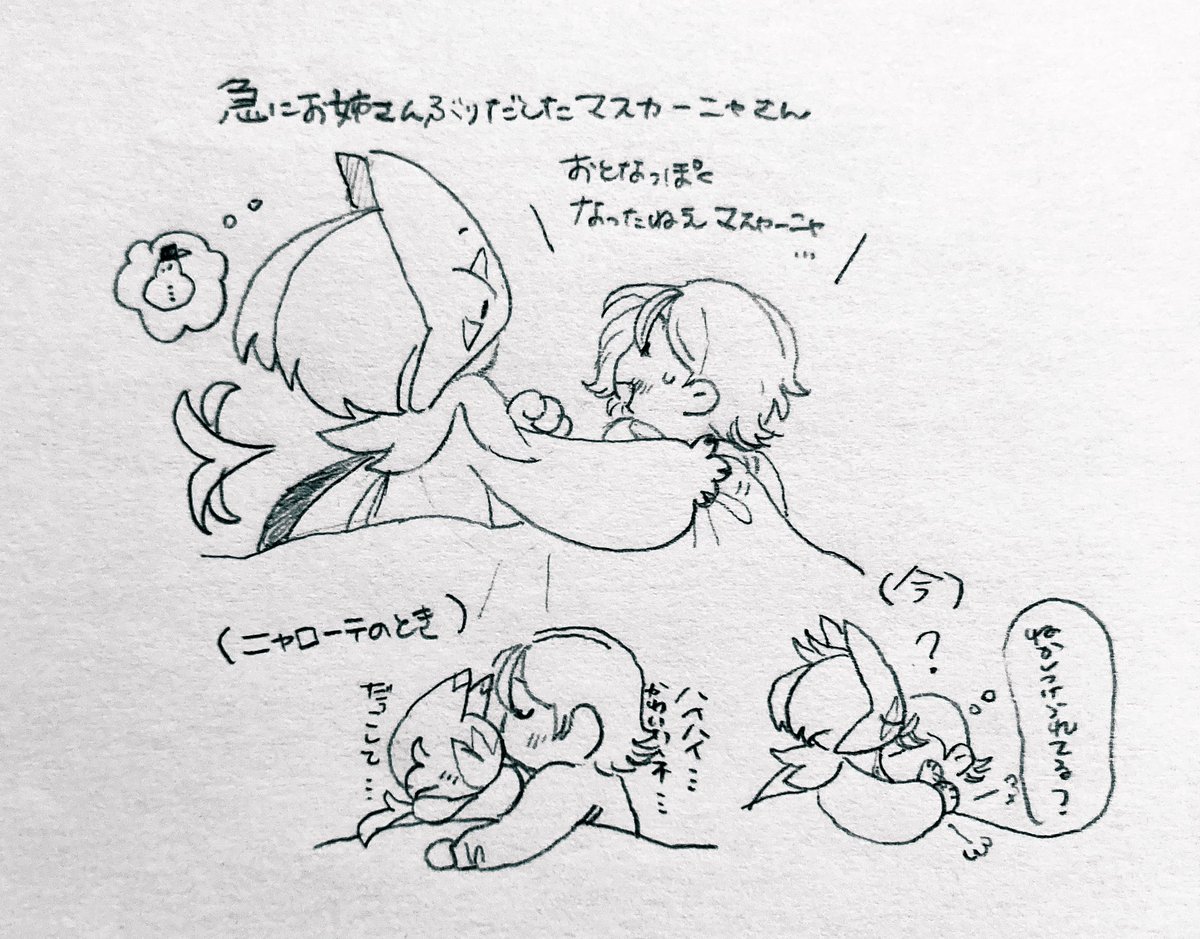 急にお姉さんぶりだしたマスカーニャさん
おとなっぽく
なったねえ マスカーニャ
…
(ニャローテのとき)
だっこして…
ハイハイ…
かわいいネ…
(今)
?